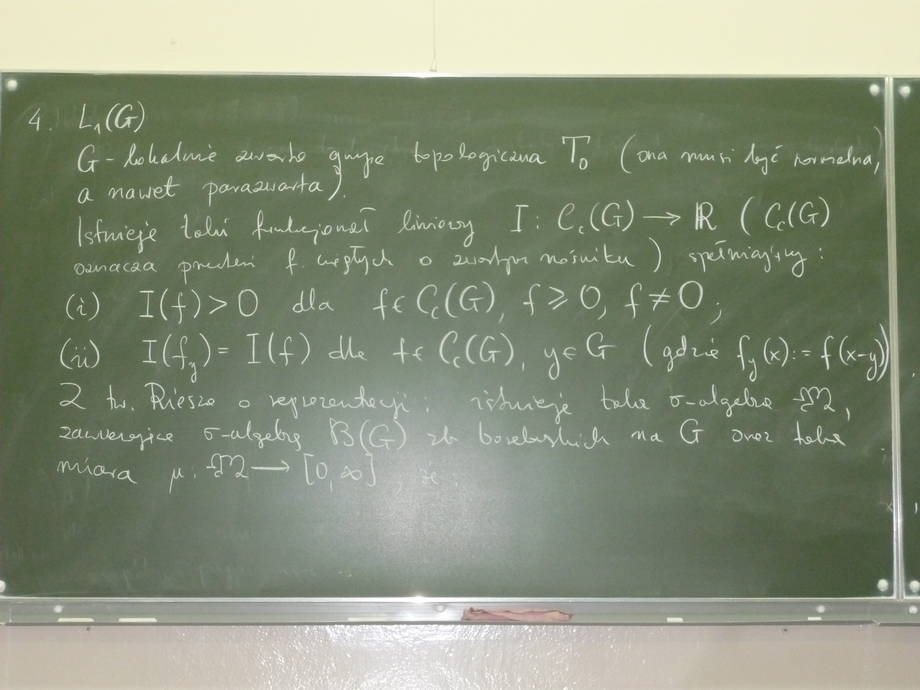 4. L₁(G)
G - lokalnie zwarta grupa topologiczna T₀ (ona musi być normalna,
a nawet parazwarta).
Istnieje taki funkcjonał liniowy I : C_c(G) → ℝ (C_c(G)
oznacza przestrzeń f. ciągłych o zwartym nośniku) spełniający :
(i) I(f) > 0 dla f ∈ C_c(G), f ⩾ 0, f ≠ 0 ;
(ii) I(f_y) = I(f) dla f ∈ C_c(G), y ∈ G (gdzie f_y(x) := f(x-y))
Z tw. Riesza o reprezentacji : istnieje taka σ-algebra 𝔐,
zawierająca σ-algebrę B(G) zb. borelowskich na G oraz taka
miara μ : 𝔐 → [0, ∞], że :